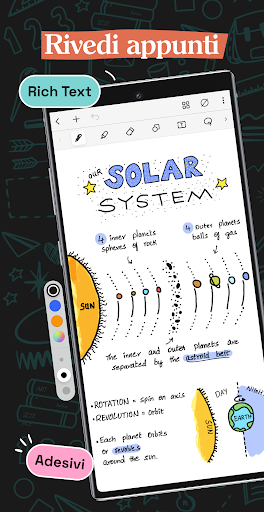 Rivedi appunti
Rich Text
OUR
SOLAR
SYSTEM
4 Inner planets
spheres of rock
4 Outer planets
balls of gas
SUN
The inner and outer planets are
separated by the astroid belt
• ROTATION = spin on axis
• REVOLUTION = Orbit
• Each planet Orbits
or revolve's
around the sun.
DAY
SUN
EARTH
Adesivi